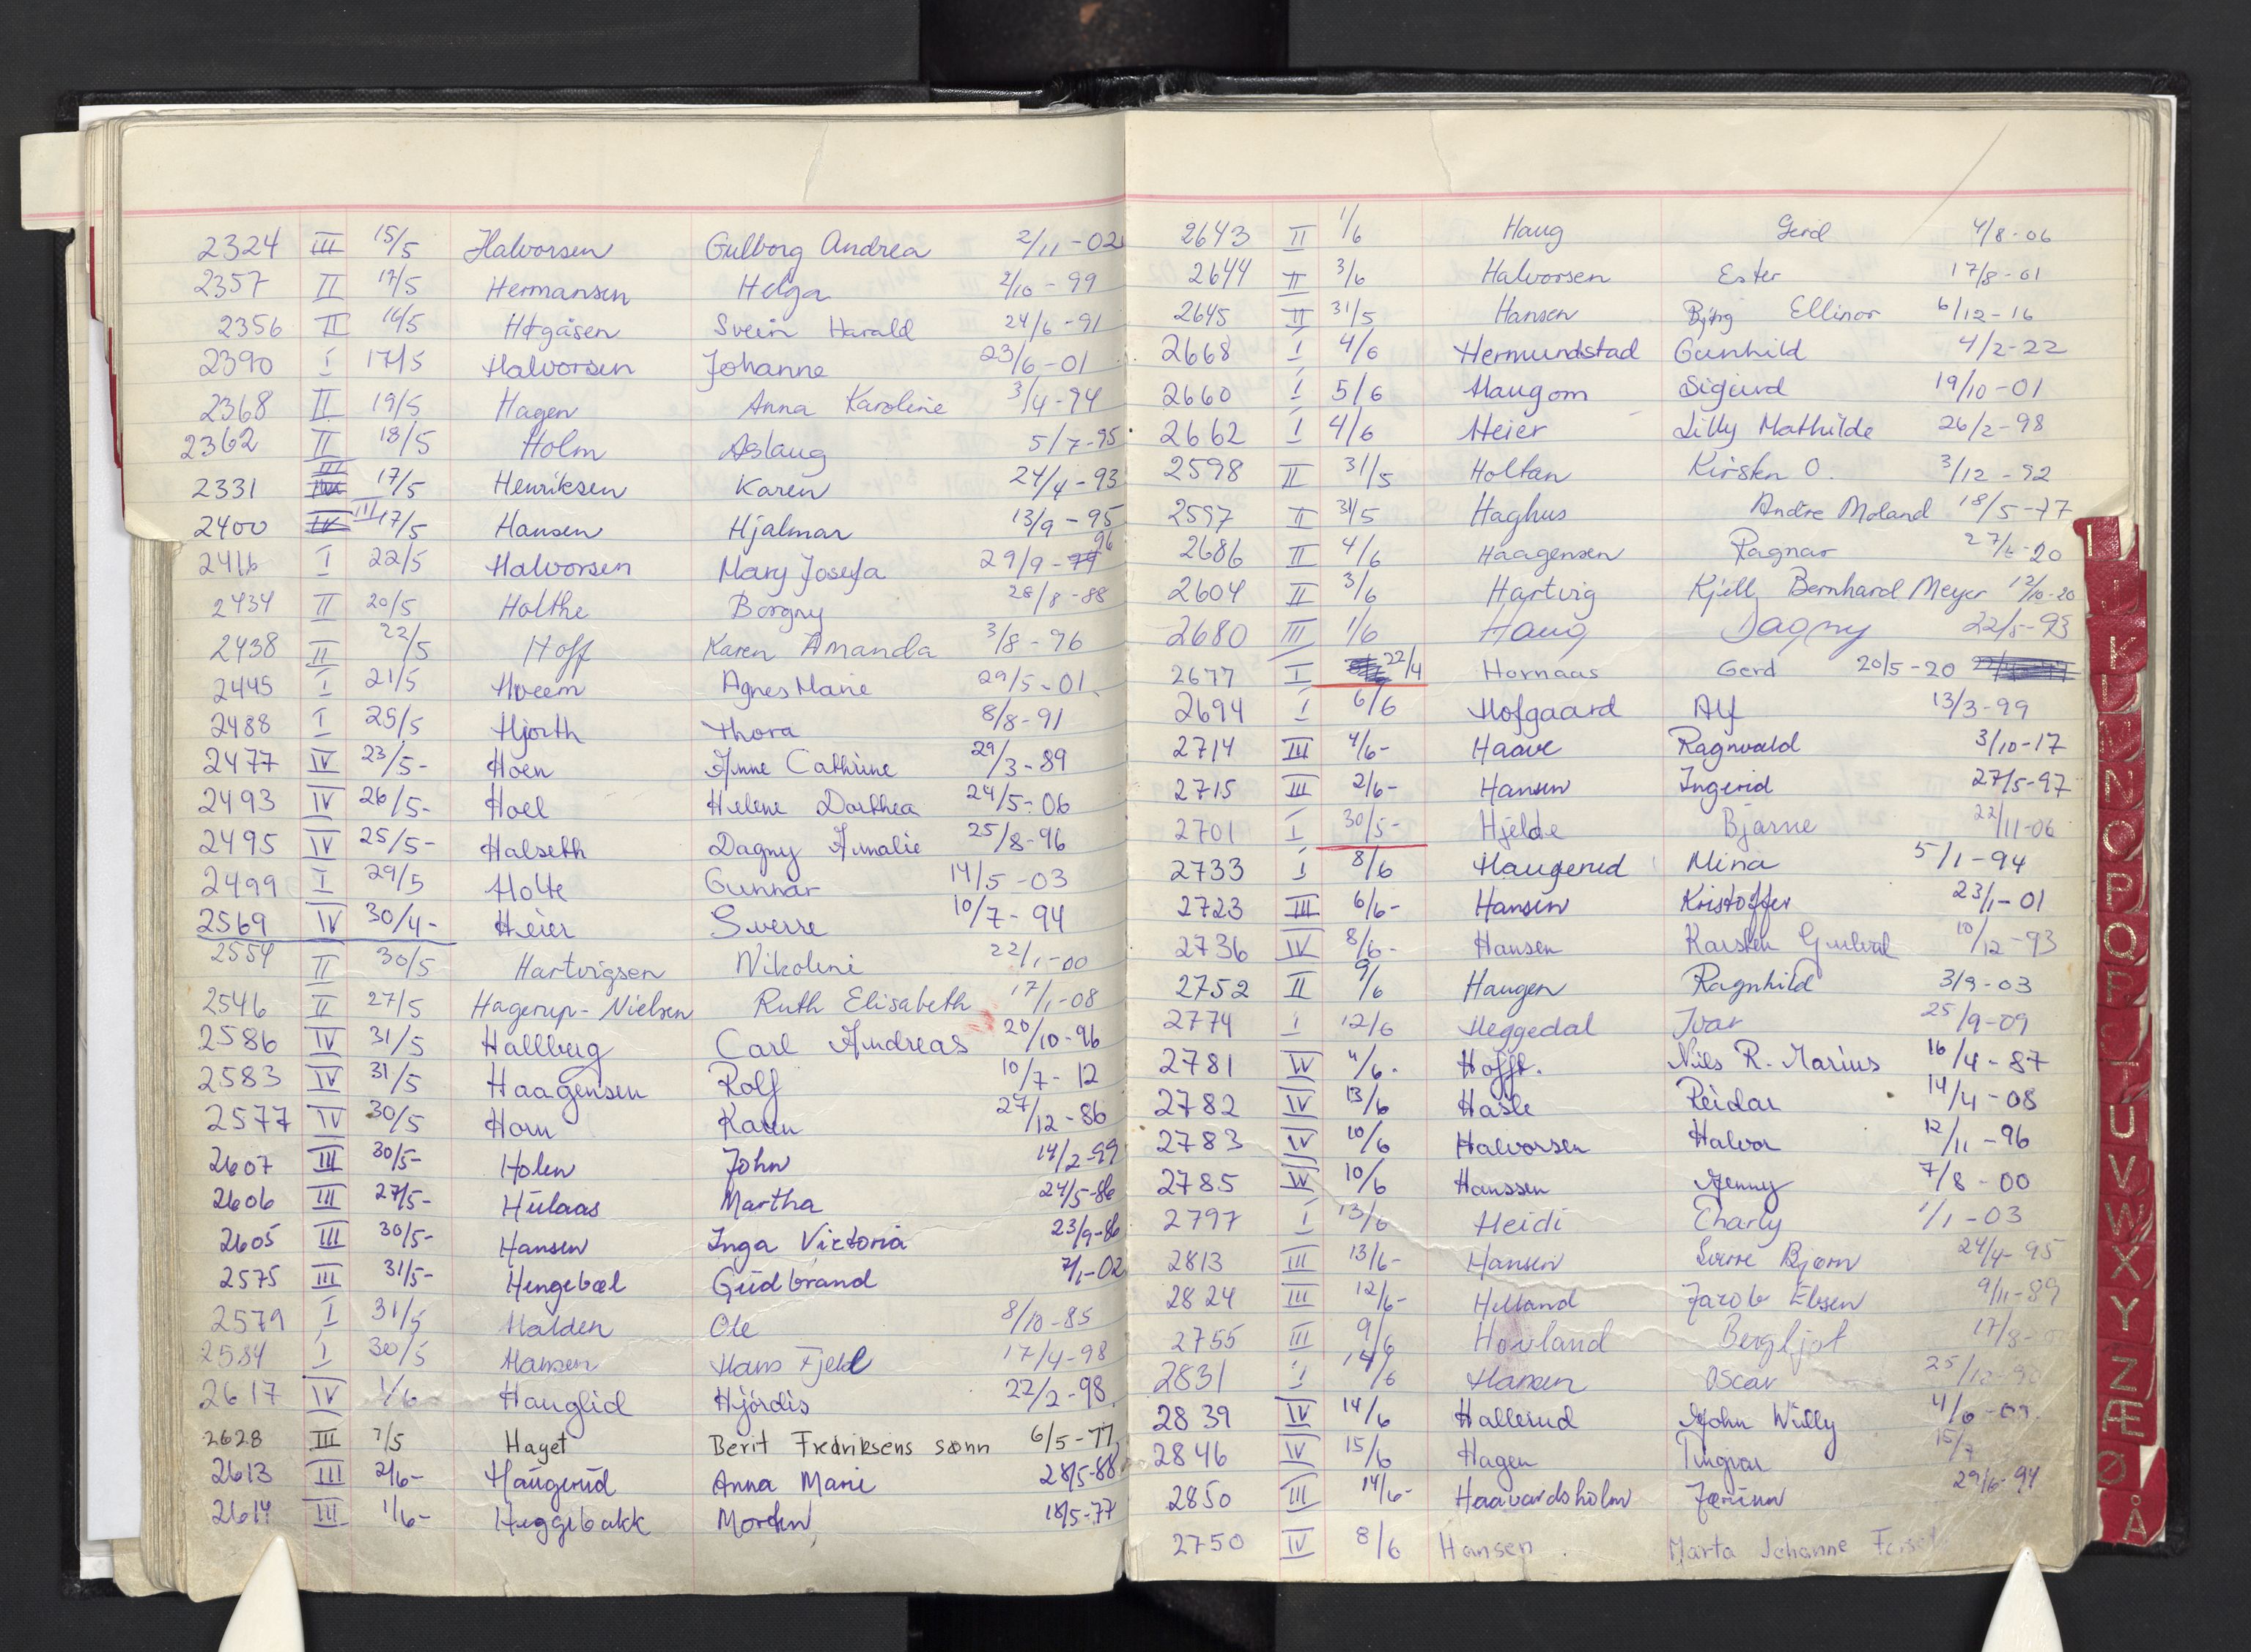 2324 III 15/5 Halvorsen Gulborg Andrea 2/11-02
2357 II 17/5 Hermansen Helga 2/10-99
2356 II 16/5 Høgåsen Svein Harald 24/6-91
2390 I 17/5 Halvorsen Johanne 23/6-01
2368 II 19/5 Hagen Anna Karoline 3/4-94
2362 II 18/5 Holm Aslaug 5/7-95
2331 III 17/5 Henriksen Karen 24/4-93
2400 III 17/5 Hansen Hjalmar 13/9-95
2416 I 22/5 Halvorsen Mary Josefa 29/9-96
2434 II 20/5 Holthe Borgny 28/8-88
2438 II 22/5 Hoff Karen Amanda 3/8-96
2445 I 21/5 Hveem Agnes Marie 29/5-01
2488 I 25/5 Hjorth Thora 8/8-91
2477 IV 23/5- Hoen Anne Cathrine 29/3-89
2493 IV 26/5- Hoel Helene Dorthea 24/5-06
2495 IV 25/5- Halseth Dagny Amalie 25/8-96
2499 I 29/5 Holte Gunnar 14/5-03
2569 IV 30/4- Heier Sverre 10/7-94
2554 II 30/5 Hartvigsen Nikolini 22/1-00
2546 II 27/5 Hagerup-Nielsen Ruth Elisabeth 17/1-08
2586 IV 31/5 Hallberg Carl Andreas 20/10-96
2583 IV 31/5 Haagensen Rolf 10/7-12
2577 IV 30/5 Horn Karen 27/12-86
2607 III 30/5- Holen John 14/2-99
2606 III 27/5- Hulaas Martha 24/5-86
2605 III 30/5- Hansen Inga Victoria 23/9-86
2575 III 31/5- Hengebøl Gudbrand 7/1-02
2579 I 31/5 Halden Ole 8/10-85
2584 I 30/5 Hansen Hans Fjeld 17/4-98
2617 IV 1/6 Hauglid Hjórdis 22/2-98
2628 III 7/5 Haget Berit Fredriksens sønn 6/5-77
2613 III 2/6- Haugerud Anna Marie 28/5-88
2614 III 1/6- Heggebakk Morten 18/5-77
2643 II 1/6 Haug Gerd 4/8-06
2644 II 3/6 Halvorsen Ester 17/8-01
2645 II 31/5 Hansen Bjørg Ellinor 6/12-16
2668 I 4/6 Hermundstad Gunhild 4/2-22
2660 I 5/6 Haugom Sigurd 19/10-01
2662 I 4/6 Heier Lilly Mathilde 26/2-98
2598 II 31/5 Holtan Kirsten O. 3/12-92
2597 II 31/5 Haghus Andre Moland 18/5-77
2686 II 4/6 Haagensen Ragnar 27/2-20
2604 II 3/6 Hartvig Kjell Bernhard Meyer 12/10-20
2680 III 1/6 Haug Dagny 22/5-93
2677 I 22/4 Hornaas Gerd 20/5-20
2694 I 6/6 Hofgaard Alf 13/3-99
2714 III 4/6- Haave Ragnvald 3/10-17
2715 III 2/6- Hansen Ingerid 27/5-97
2701 I 30/5- Hjelde Bjarne 22/11-06
2733 I 8/6 Haugerud Mina 5/1-94
2723 III 6/6- Hansen Kristoffer 23/1-01
2736 IV 8/6- Hansen Karsten 10/12-93
2752 II 9/6 Haugen Ragnhild 3/9-03
2774 I 12/6 Heggedal Ivar 25/9-09
2781 IV 4/6. Hofft. Nils R. Marius 16/4-87
2782 IV 13/6 Hasle Reidar 14/4-08
2783 IV 10/6 Halvorsen Halvor 12/11-96
2785 IV 10/6 Hanssen Jenny 7/8-00
2797 I 13/6 Heidi Charly 1/1-03
2813 III 13/6- Hansen Sverre Bjørn 24/4-95
2824 III 12/6- Helland Jacob Ebsen 9/11-89
2755 III 9/6 Hovland Bergljot 17/8-
2831 I 14/6 Hansen Oscar 25/12-90
2839 IV 14/6 Hallerud John Willy 4/6-09
2846 IV 15/6 Hagen Ingvar 15/7
2850 III 14/6- Haavardsholm Jørunn 29/6-94
2750 IV 8/6 Hansen. Marta Johanne
I
J
K
L
M
N
O
P
Q
R
S
T
U
V
W
X
Y
Z
Æ
Ø
Å